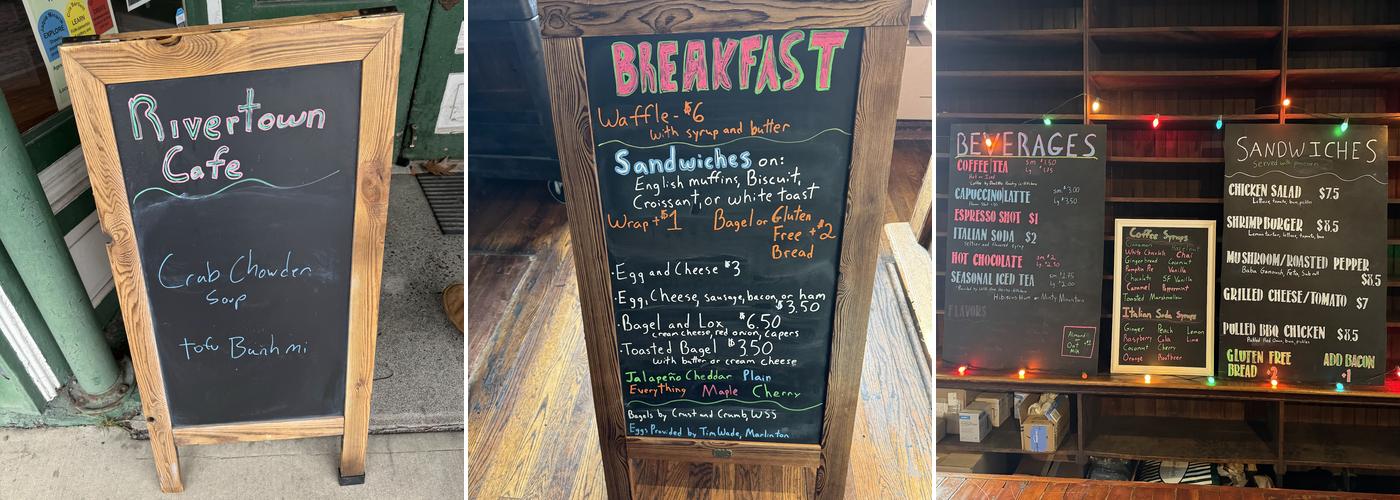 EXPLORE
LEARN
Rivertown
Cafe
Crab Chowder
Soup
tofu Banh mi
BREAKFAST
Waffle - $6
with syrup and butter
Sandwiches on:
English muffins, Biscuit,
Croissant, or white toast
Wrap + $1 Bagel or Gluten
Free + $2
Bread
· Egg and Cheese $3
· Egg, Cheese, sausage, bacon, or ham
$3.50
· Bagel and Lox $6.50
cream cheese, red onion, capers
· Toasted Bagel $3.50
with butter or cream cheese
Jalapeño Cheddar Plain
Everything Maple Cherry
Bagels by Crust and Crumb, WSS
Eggs Provided by Tim Wade, Marlinton
BEVERAGES
COFFEE|TEA sm $1.50
Hot or Iced
CAPUCCINO|LATTE sm $3.00
lg $3.50
ESPRESSO SHOT $1
ITALIAN SODA $2
Seltzer and flavored syrup
HOT CHOCOLATE sm $2
lg $2.50
SEASONAL ICED TEA sm $1.75
lg $2.00
Hibiscus Rush or Minty Mountains
FLAVORS
Almond
Oat
Milk
Coffee Syrups
Cinnamon Hazelnut
White Chocolate Chai
Gingerbread Coconut
Pumpkin Pie Vanilla
Chocolate SF Vanilla
Caramel Peppermint
Toasted Marshmallow
Italian Soda Syrups
Ginger Peach Lemon
Raspberry Cola Lime
Coconut Cherry
Orange Rootbeer
SANDWICHES
Served with
CHICKEN SALAD $7.5
Lettuce, tomato, bun, pickles
SHRIMP BURGER $8.5
Lemon tartar, lettuce, tomato, bun
MUSHROOM/ROASTED PEPPER
Baba Ganoush, Feta, $8.5
GRILLED CHEESE/TOMATO $7
PULLED BBQ CHICKEN $8.5
Pickled Red Onion, bun, pickles
GLUTEN FREE ADD BACON
BREAD $2 $1